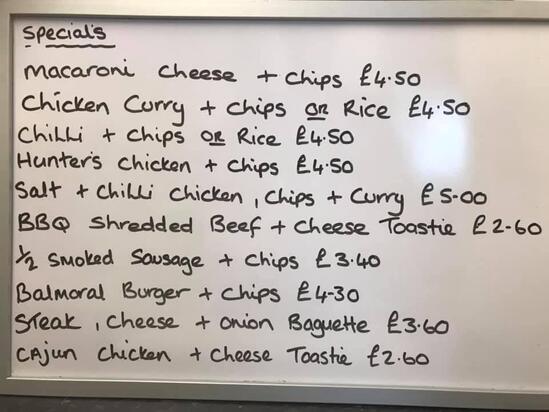 Special's
Macaroni Cheese + Chips £4.50
Chicken Curry + Chips OR Rice £4.50
Chilli + Chips OR Rice £4.50
Hunter's Chicken + Chips £4.50
Salt + Chilli Chicken, Chips + Curry £5-00
BBQ Shredded Beef + Cheese Toastie £2-60
1/2 Smoked Sausage + Chips £3.40
Balmoral Burger + Chips £4-30
Steak, Cheese + Onion Baguette £3.60
Cajun Chicken + Cheese Toastie £2.60